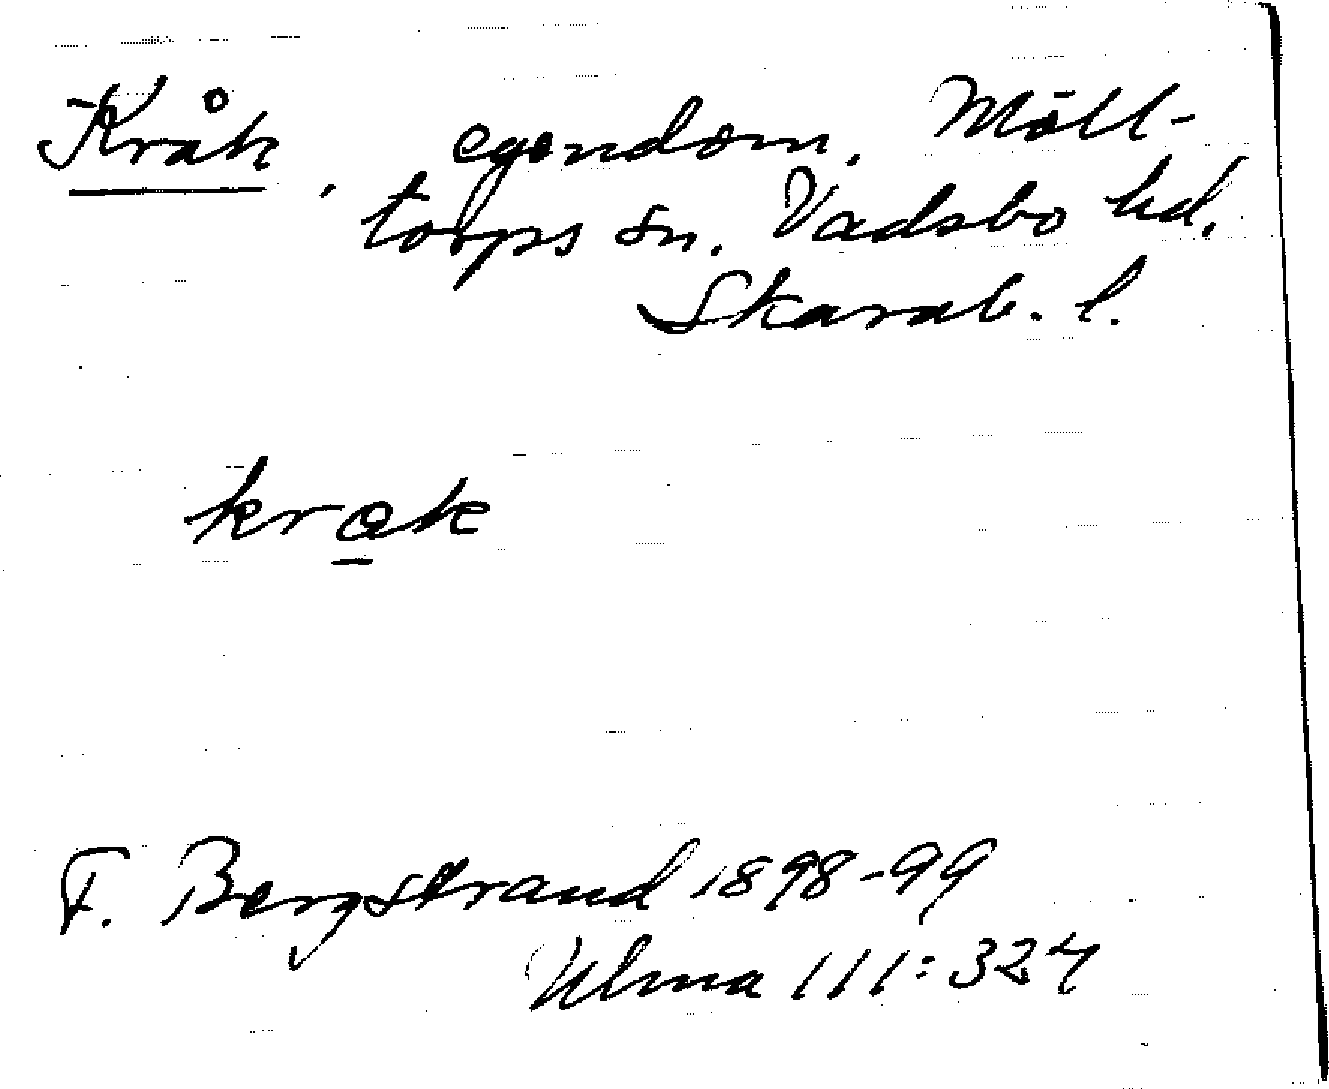 Kråk, egendom, Möll-
torps sn. Vadsbo hd.
Skarab. l.
krok
F. Bergstrand 1898-99
Ulma 111:324